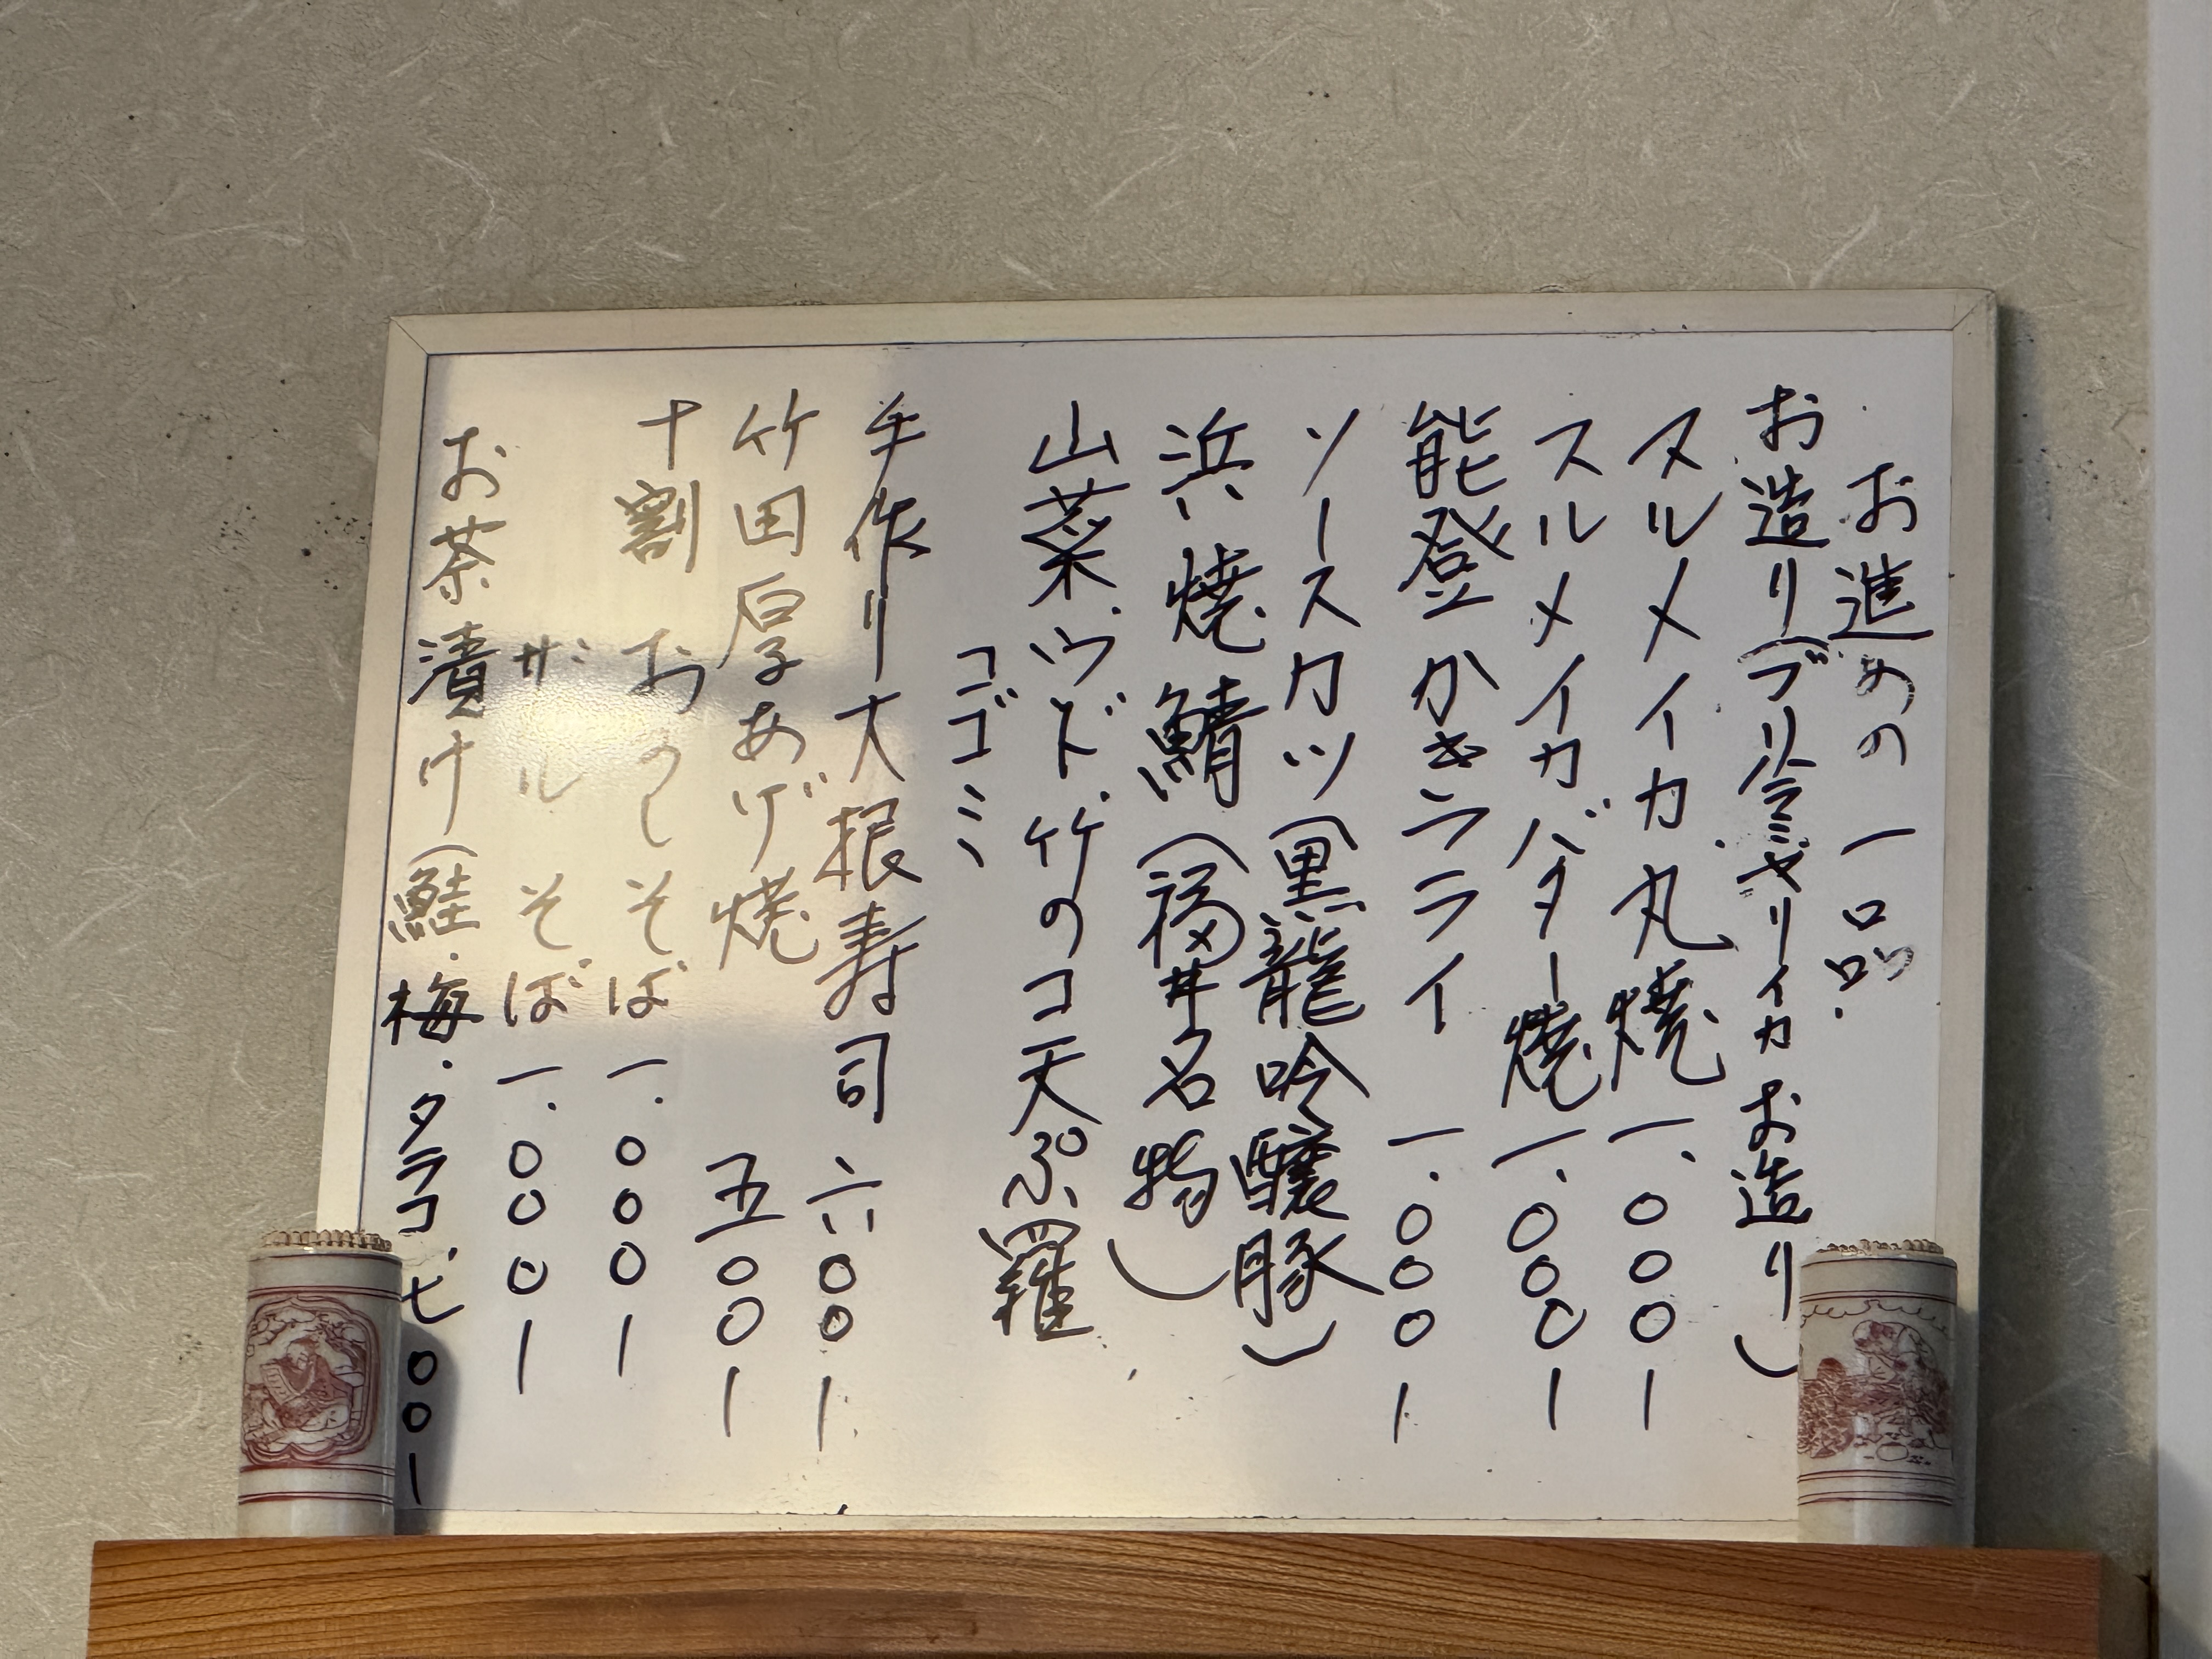 お進めの一品.
お造り(ブリ.ヤリイカお造り)
スルメイカ丸焼 一、〇〇〇ー
スルメイカバター焼 一、〇〇〇ー
能登かきフライ 一、〇〇〇ー
ソースカツ(黒龍吟醸豚)
浜焼鯖(福井名物)
山菜.ウド.竹のコ天ぷ羅
コゴミ
手作り大根寿司 六〇〇ー
竹田厚あげ焼 五〇〇ー
十割 おろしそば 一、〇〇〇ー
ザルそば 一、〇〇〇ー
お茶漬け(鮭.梅.タラコ. 七〇〇ー